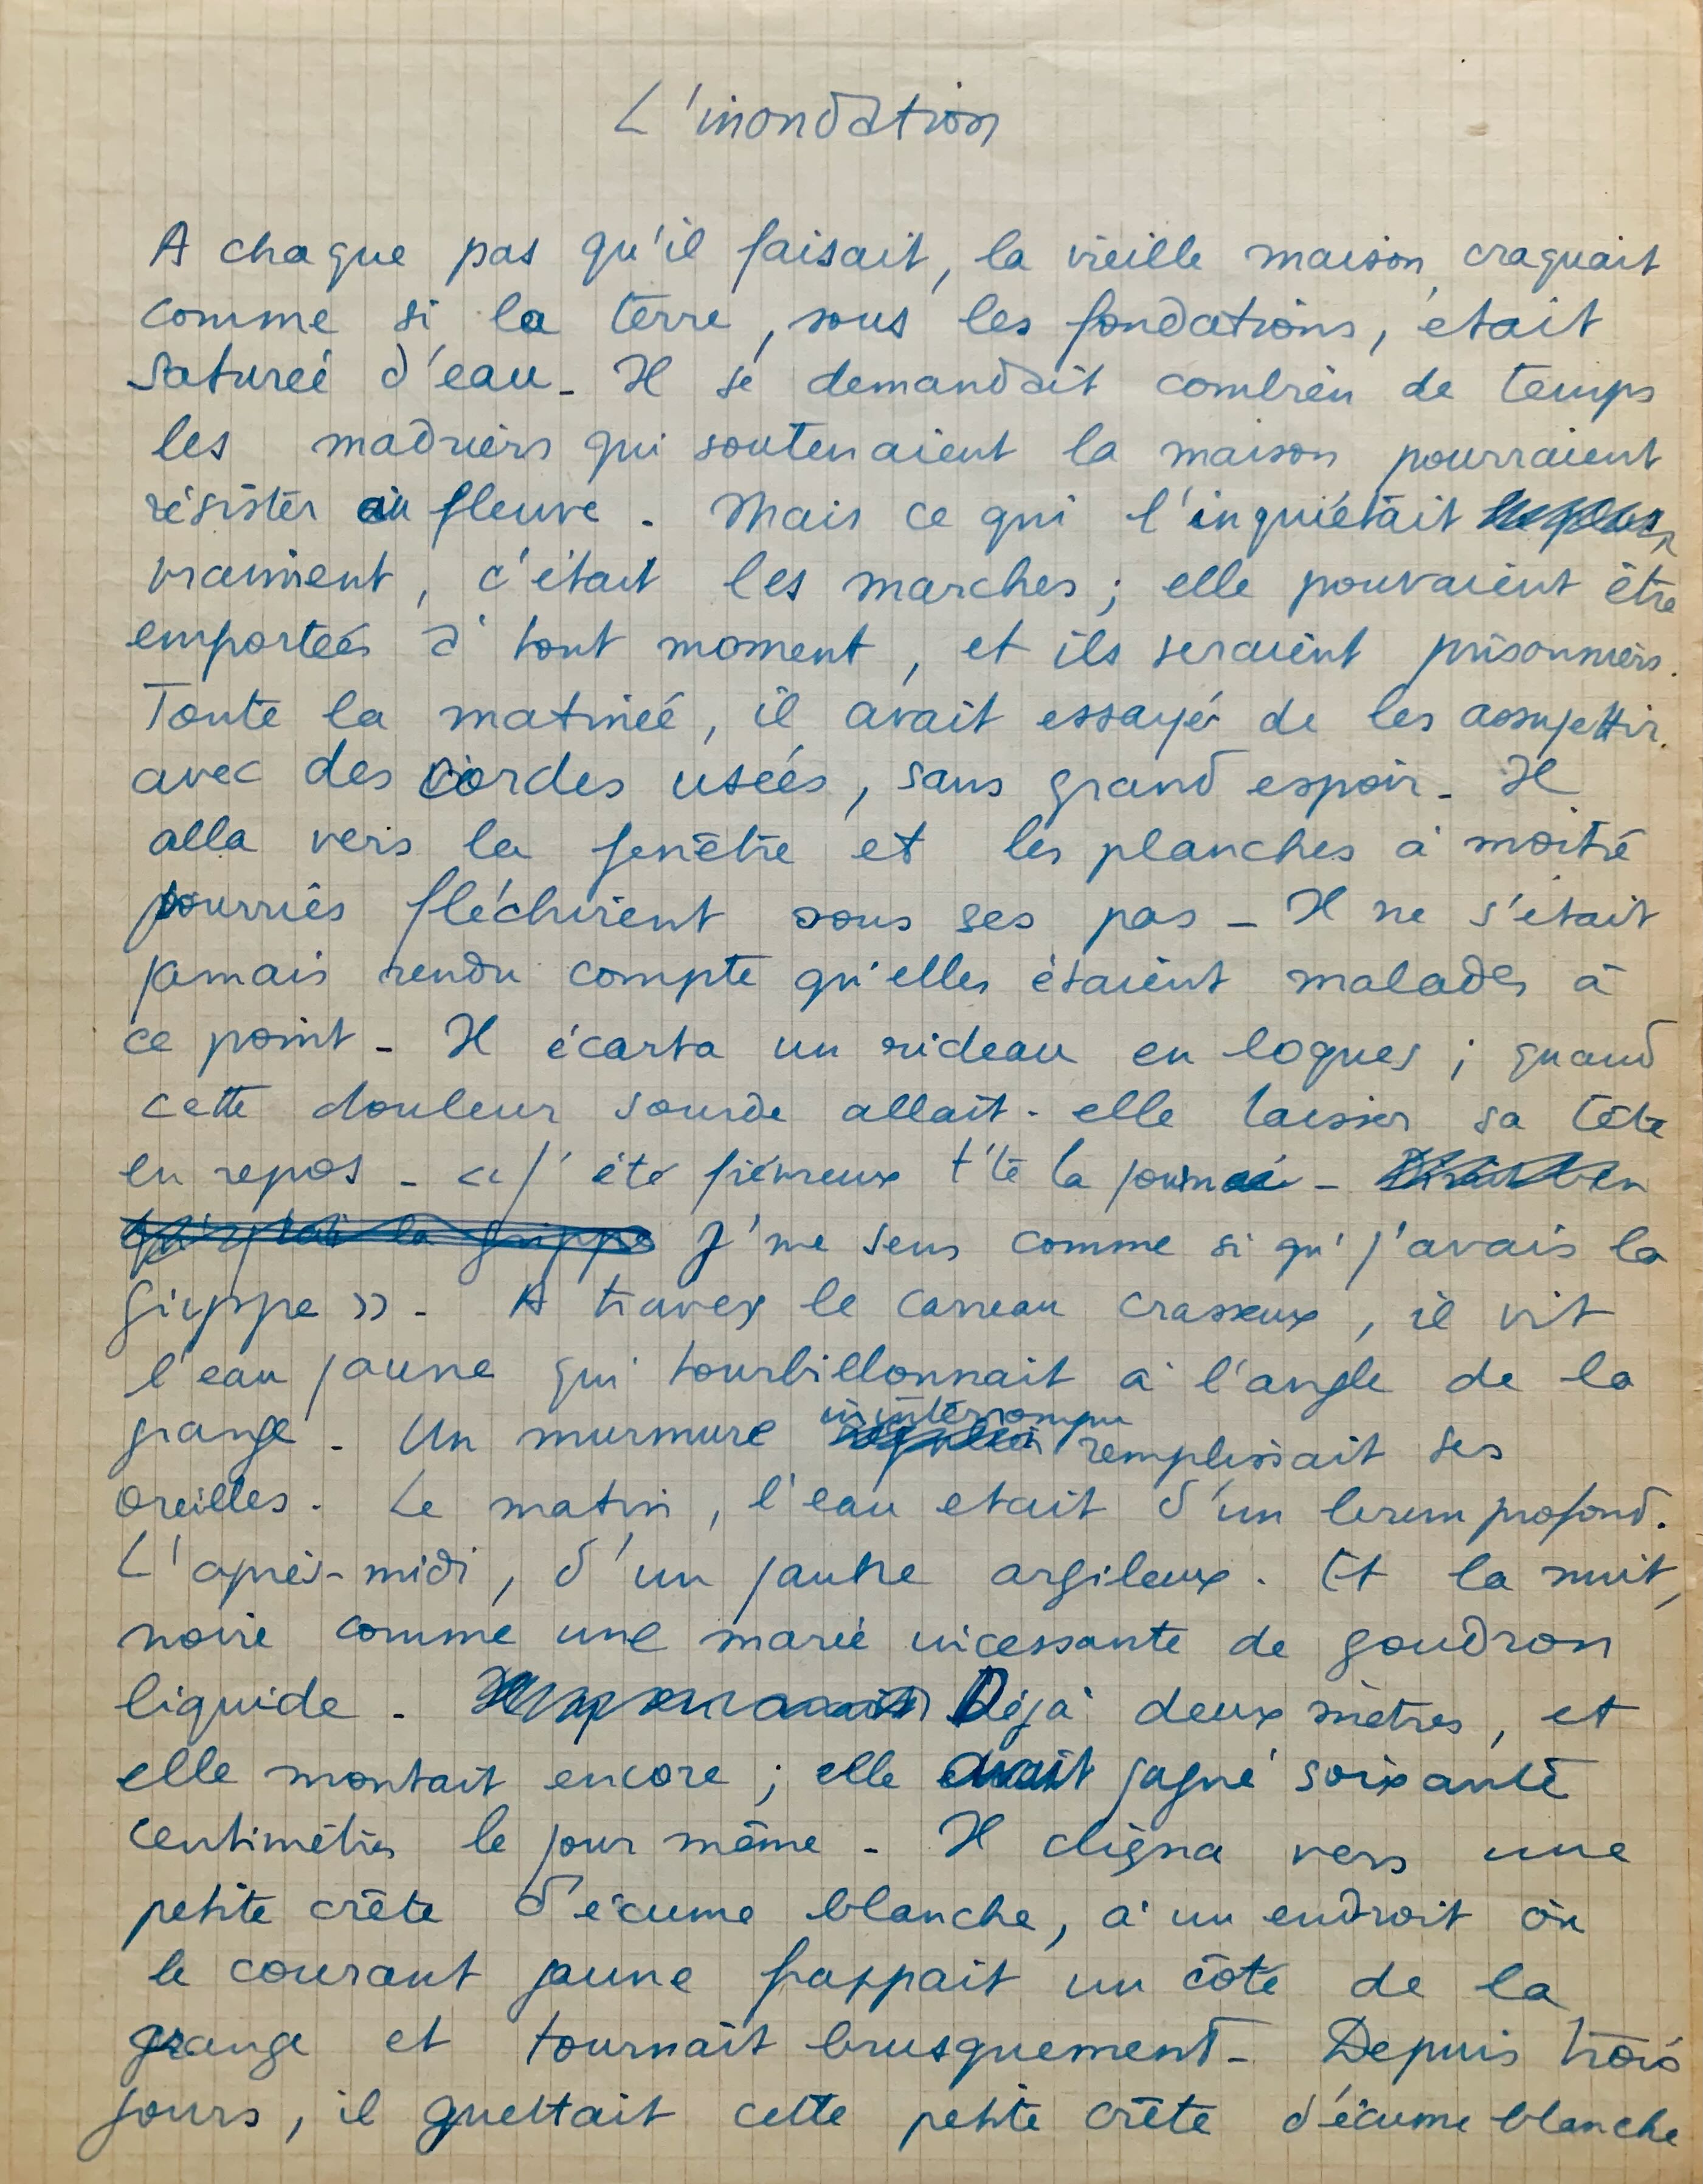 L'inondation
A chaque pas qu'il faisait, la vieille maison craquait
comme si la terre, sous les fondations, était
saturée d'eau - Il se demandait combien de temps
les madriers qui soutenaient la maison pourraient
résister au fleuve. Mais ce qui l'inquiétait le plus
vraiment, c'était les marches ; elle pouvaient être
emportées à tout moment, et ils seraient prisonniers.
Toute la matinée, il avait essayé de les assujettir
avec des cordes usées, sans grand espoir - Il
alla vers la fenêtre et les planches à moitié
pourries fléchirent sous ses pas - Il ne s'était
jamais rendu compte qu'elles étaient malades à
ce point - Il écarta un rideau en loques ; quand
cette douleur sourde allait-elle laisser sa tête
en repos - « J' été fiévreux t'te la journée -
la grippe J'me sens comme si qu' j'avais la
grippe » - A travers le carreau crasseux, il vit
l'eau jaune qui tourbillonnait à l'angle de la
grange - Un murmure ininterrompu remplissait ses
oreilles. Le matin, l'eau était d'un brun profond.
L'après-midi, d'un jaune argileux. Et la nuit,
noire comme une marée incessante de goudron
liquide - Déjà deux mètres, et
elle montait encore ; elle avait gagné soixante
centimètres le jour même - Il cligna vers une
petite crête d'écume blanche, à un endroit où
le courant jaune frappait un côté de la
grange et tournait brusquement - Depuis trois
jours, il guettait cette petite crête d'écume blanche